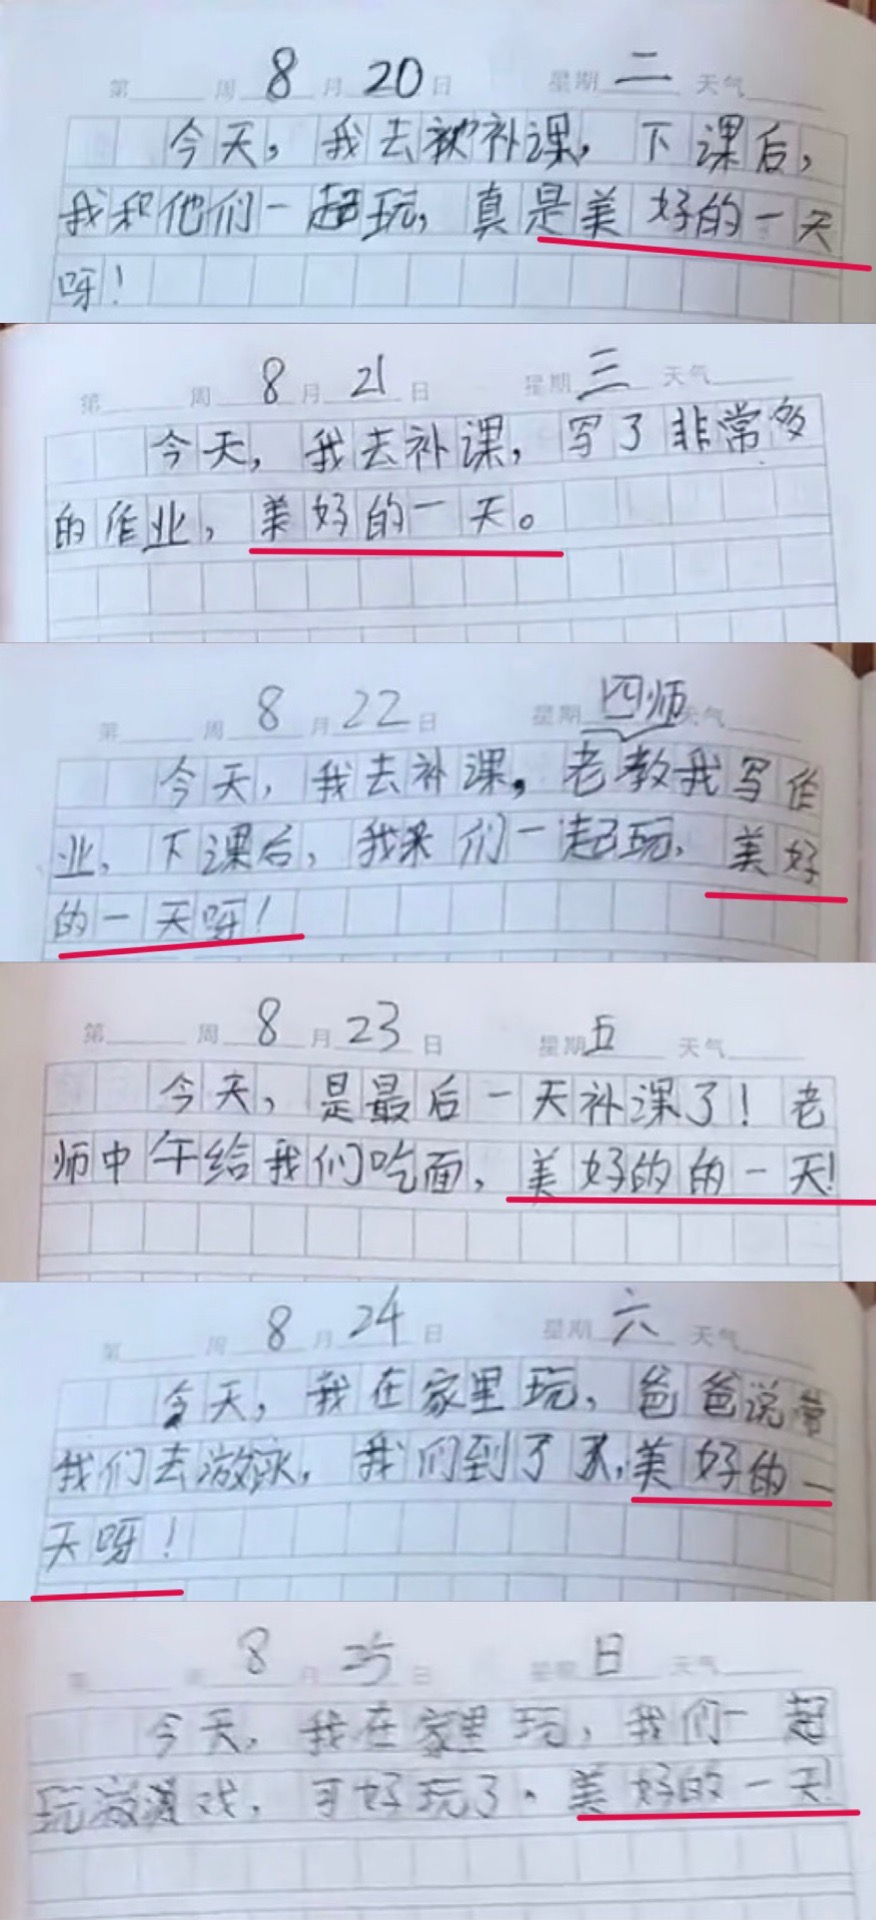 第 周 8 月 20 日 星期 二 天气
今天，我去补课，下课后，
我和他们一起玩，真是美好的一天
呀！
第 周 8 月 21 日 星期 三 天气
今天，我去补课，写了非常多
的作业，美好的一天。
第 周 8 月 22 日 星期 四 天气
师
今天，我去补课，老教我写作
业，下课后，我来们一起玩，美好
的一天呀！
第 周 8 月 23 日 星期 五 天气
今天，是最后一天补课了！老
师中午给我们吃面，美好的的一天！
第 周 8 月 24 日 星期 六 天气
今天，我在家里玩，爸爸说带
我们去游泳，我们到了，美好的一
天呀！
第 周 8 月 25 日 星期 日 天气
今天，我在家里玩，我们一起
玩游戏，可好玩了。美好的一天！